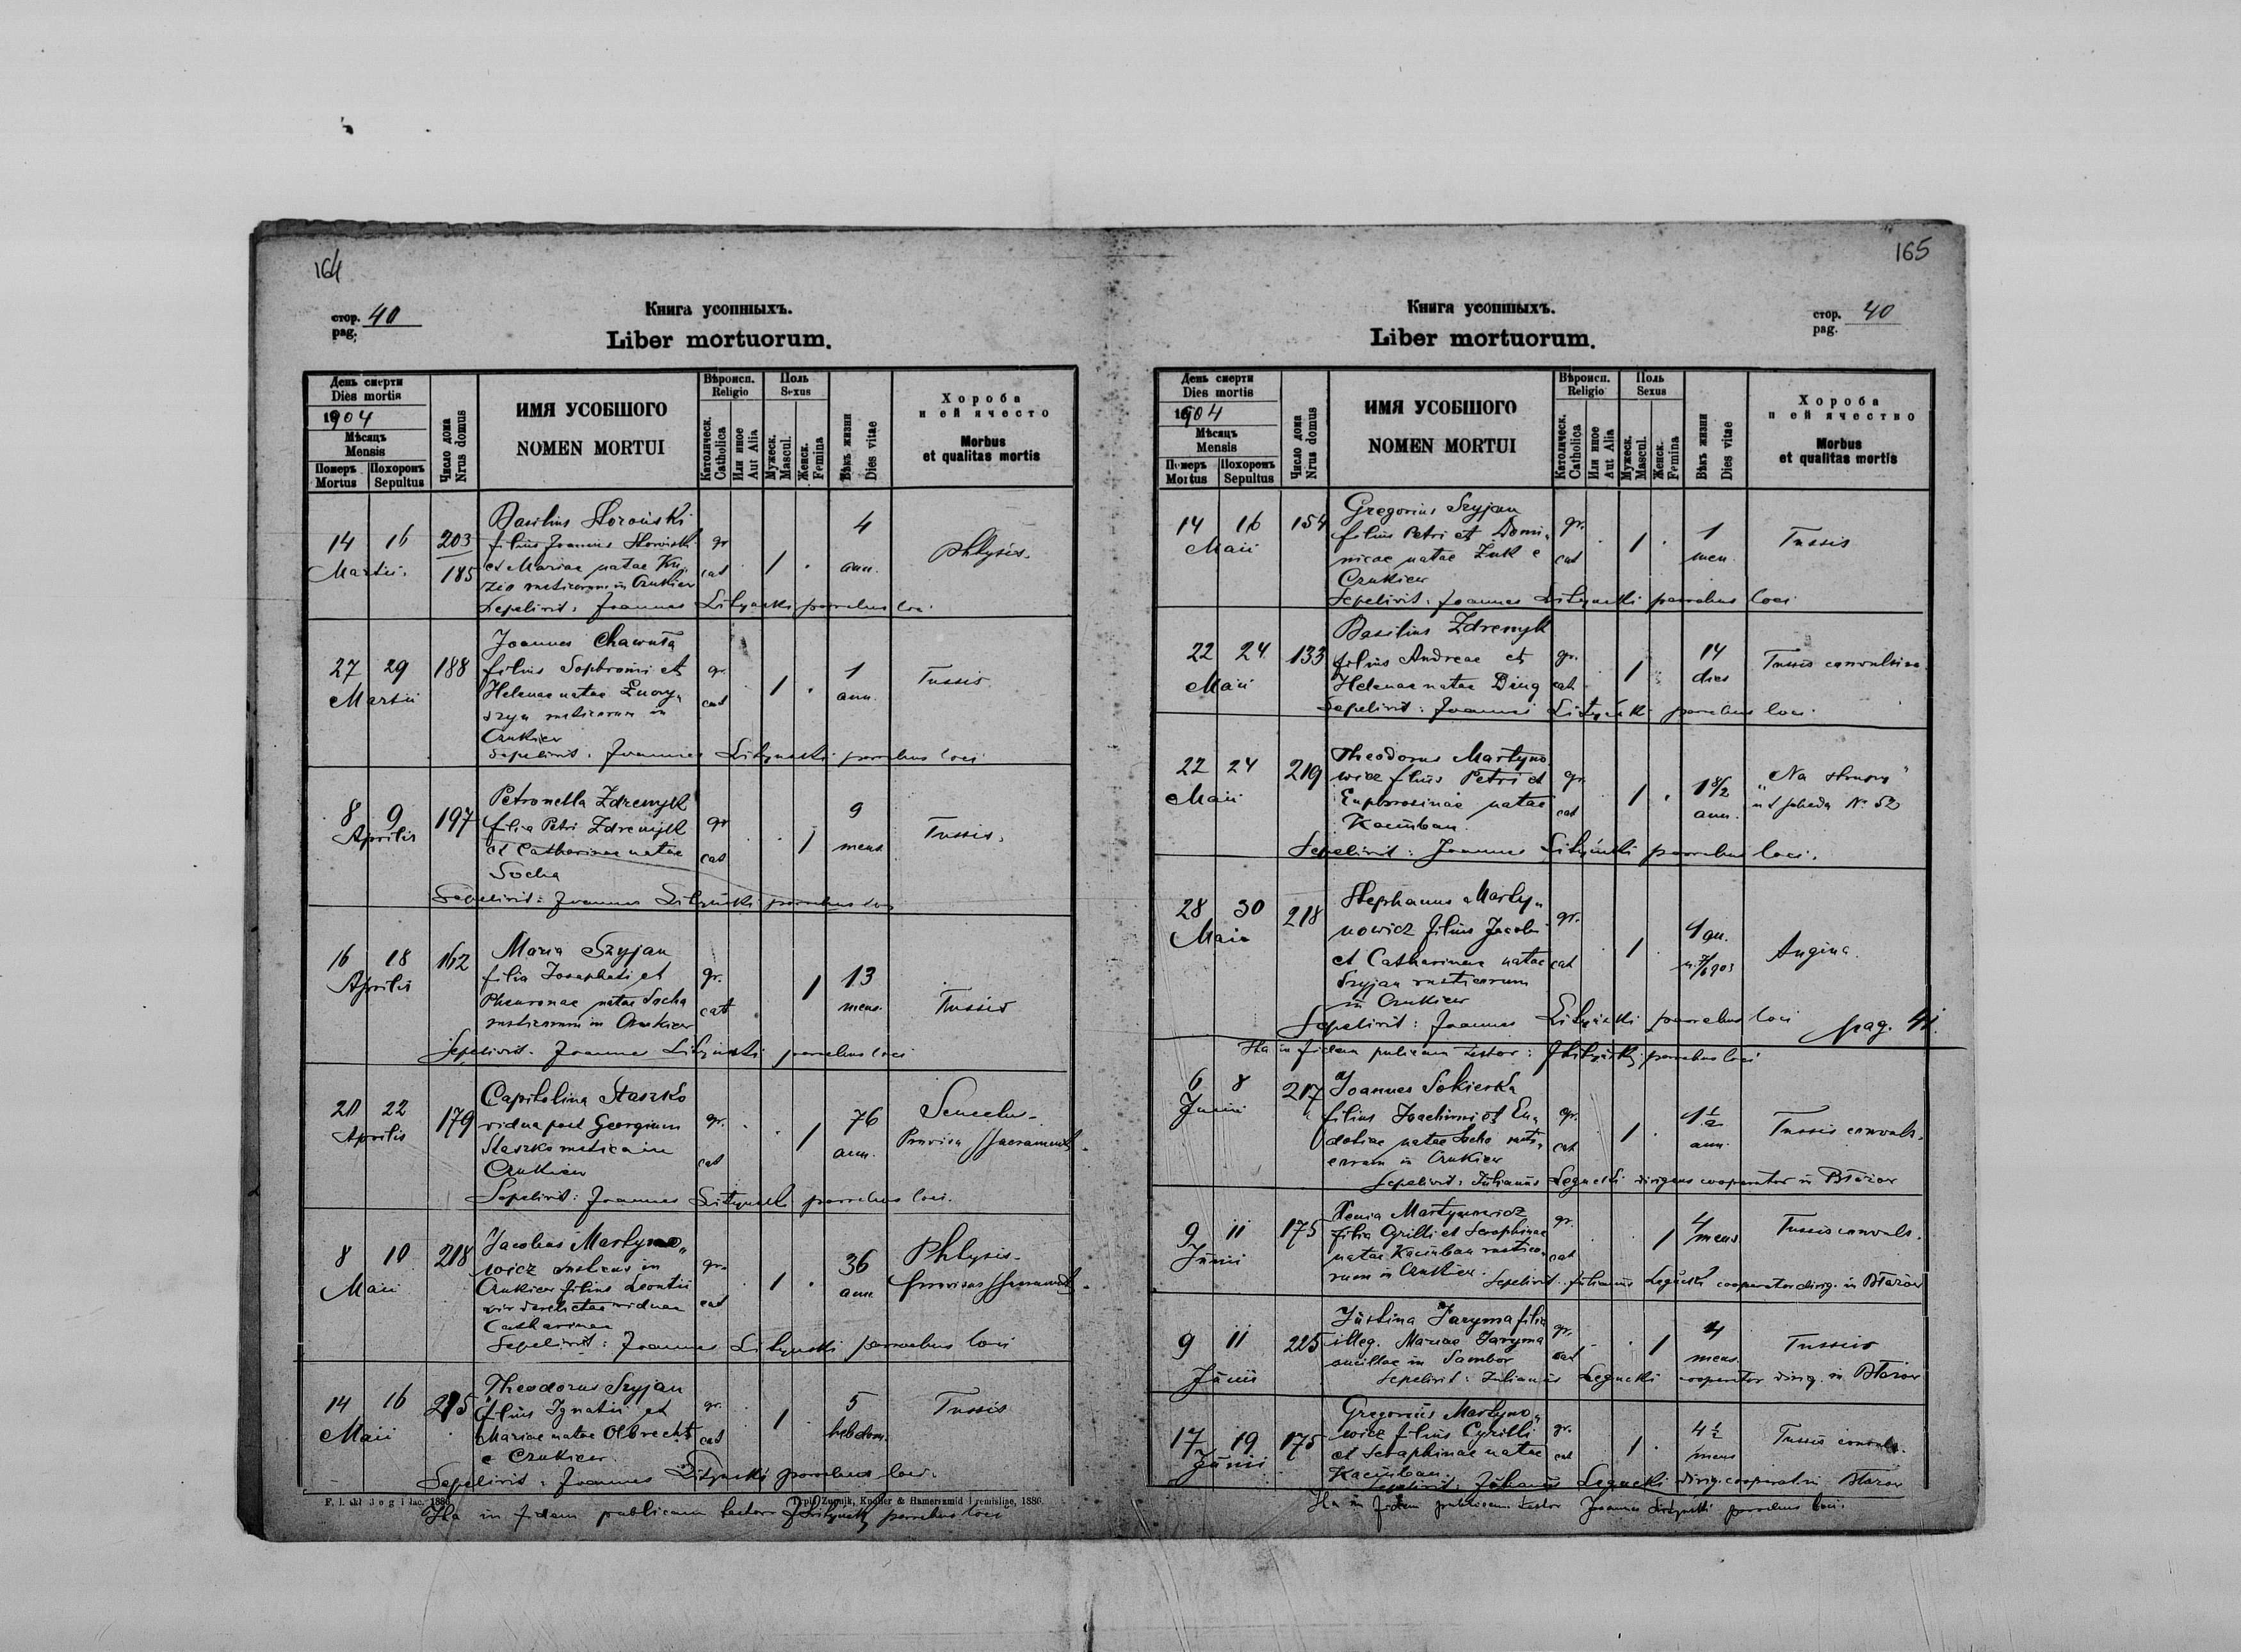 164
стор. 40
pag.
Книга усопшыхъ.
Liber mortuorum.
День смерти
Dies mortis
1904
Мѣсяцъ
Mensis
Померъ Похоронъ
Mortus Sepultus
Число дома
Nrus domus
ИМЯ УСОБШОГО
NOMEN MORTUI
Вѣроисп.
Religio
Католическ.
Catholica
Или иное
Aut Alia
Поль
Sexus
Мужеск.
Mascul.
Женск.
Femina
Вѣкъ жизни
Dies vitae
Хороба
и ей ячесто
Morbus
et qualitas mortis
14 16 203
Martii 185
Basilius
filius Joannis
et Mariae natae
rusticorum in Czukiew
gr cat 1 4 ann. Phtysis.
Sepelivit: Joannes Lityński parochus loci
27 29 188
Martii
Joannes Chawuła
filius Sophronii et
Helenae natae
rusticorum in
Czukiew
gr. cat 1 1 ann. Tussis
Sepelivit: Joannes Lityński parochus loci
8 9 197
Aprilis
Petronella Zdremyk
filia Petri Zdremyk
et Catharinae natae
Socha
gr cat 1 9 mens Tussis.
Sepelivit: Joannes Lityński parochus loci
16 18 162
Aprilis
Maria Szyjan
filia Josaphati et
Pheuronae natae Socha
rusticorum in Czukiew
gr. cat 1 13 mens. Tussis
Sepelivit. Joannes Lityński parochus loci
20 22 179
Aprilis
Capitolina Staszko
vidua post Georgium
Staszko rustica in
Czukiew
gr. cat 1 76 ann.
Provisa SSacramentis
Sepelivit: Joannes Lityński parochus loci.
8 10 218
Maii
Jacobus Martyno„
wicz rusticus in
Czukiew filius Leontii
vir derelictae viduae
Catharinae
gr. cat 1 36 ann Phtysis.
provisus SSacramentis.
Sepelivit: Joannes Lityński parochus loci
14 16 215
Maii
Theodorus Szyjan
filius Ignatii et
Mariae natae Olbrecht
e Czukiew.
gr. cat 1 5 hebdom. Tussis
Sepelivit: Joannes Lityński parochus loci.
1886
Typ. Żupnik, Knoller & Hamerszmid Premisliae, 1886.
Ita in fidem publicam testor JLityński parochus loci
165
стор. 40
pag.
Книга усопшыхъ.
Liber mortuorum.
День смерти
Dies mortis
1904
Мѣсяцъ
Mensis
Померъ Похоронъ
Mortus Sepultus
Число дома
Nrus domus
ИМЯ УСОБШОГО
NOMEN MORTUI
Вѣроисп.
Religio
Католическ.
Catholica
Или иное
Aut Alia
Поль
Sexus
Мужеск.
Mascul.
Женск.
Femina
Вѣкъ жизни
Dies vitae
Хороба
и ей ячество
Morbus
et qualitas mortis
14 16 154
Maii
Gregorius Szyjan
filius Petri et Domi„
nicae natae Żuk e
Czukiew
gr. cat 1 1 men. Tussis
Sepelivit: Joannes Lityński parochus loci
22 24 133
Maii
Basilius Zdremyk
filius Andreae et
Helenae natae
gr. cat. 1 14 dies Tussis convulsiva
Sepelivit: Joannes Lityński parochus loci.
22 24 219
Maii
Theodorus Martyno
wicz filius Petri et
Euphrosinae natae
Kaczuban.
gr. cat 1 ann. ut scheda № 52
Sepelivit: Joannes Lityński parochus loci.
28 30 218
Maii
Stephanus Marty„
nowicz filius Jacobi
et Catharinae natae
Szyjan rusticorum
in Czukiew
gr. cat 1 Angina.
Sepelivit: Joannes Lityński parochus loci
pag. 41.
Ita in fidem publicam testor: JLityński parochus loci
6 8 217
Junii
Joannes Sokierka
filius Joachimi et Eu„
dokiae natae Socha rusti„
corum in Czukiew
gr. cat 1 1½ ann. Tussis convuls.
Sepelivit: Julianus Łegucki dirigens cooperator in Błażow
9 11 175
Junii
Xenia Martynowicz
filia Cyrilli et Seraphinae
natae Kaczuban rustico„
rum in Czukiew.
gr. cat 1 4 mens Tussis convuls.
Sepelivit: Julianus Łegucki cooperator dirig. in Błażow
9 11 225
Junii
Justina Jaryma filia
illeg. Mariae Jaryma
ancillae in Sambor
gr. cat 1 4 mens. Tussis
Sepelivit: Julianus Łegucki cooperator dirig. in Błażow
17 19 175
Junii
Gregorius Martyno„
wicz filius Cyrilli
et Seraphinae natae
Kaczuban
gr. cat 1 4½ mens Tussis convuls.
Sepelivit: Julianus Łegucki dirig. cooperator Błażow
Ita in fidem publicam testor Joannes Lityński parochus loci.